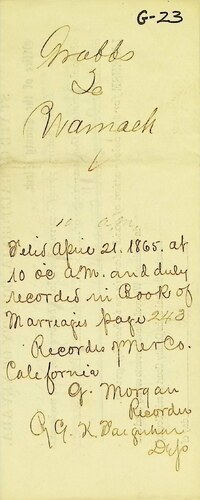 G-23
Grabbs
To
Wamack
Filed April 21. 1865. at
10 oc A.M. and duly
recorded in Book of
Marreages page 243
Recorder of Mer Co.
California
G. Morgan
Recorder
By G. K.
Dep